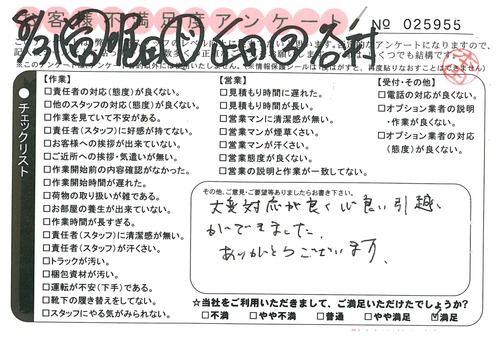 お客様不満足度アンケート
No 025955
チェックリスト
【作業】
□責任者の対応(態度)が良くない。
□他のスタッフの対応(態度)が良くない。
□作業を見ていて不安がある。
□責任者(スタッフ)に好感が持てない。
□お客様への挨拶が出来ていない。
□ご近所への挨拶・気遣いが無い。
□作業開始前の内容確認がなかった。
□作業開始時間が遅れた。
□荷物の取り扱いが雑である。
□お部屋の養生が出来ていない。
□作業時間が長すぎる。
□責任者(スタッフ)に清潔感が無い。
□責任者(スタッフ)が汗くさい。
□トラックが汚い。
□梱包資材が汚い。
□運転が不安(下手)である。
□靴下の履き替えをしてない。
□スタッフにやる気がみられない。
【営業】
□見積もり時間に遅れた。
□見積もり時間が長い。
□営業マンに清潔感が無い。
□営業マンが煙草くさい。
□営業マンが汗くさい。
□営業態度が良くない。
□営業の説明と作業が一致してない。
【受付・その他】
□電話の対応が良くない。
□オプション業者の説明
・作業が良くない。
□オプション業者の対応
(態度)が良くない。
その他、ご意見・ご要望等ありましたらお書き下さい。
大変対応が良く心良い引越し
ができました。
ありがとうございます。
☆当社をご利用いただきまして、ご満足いただけたでしょうか?
□不満 □やや不満 □普通 □やや満足 ☑満足